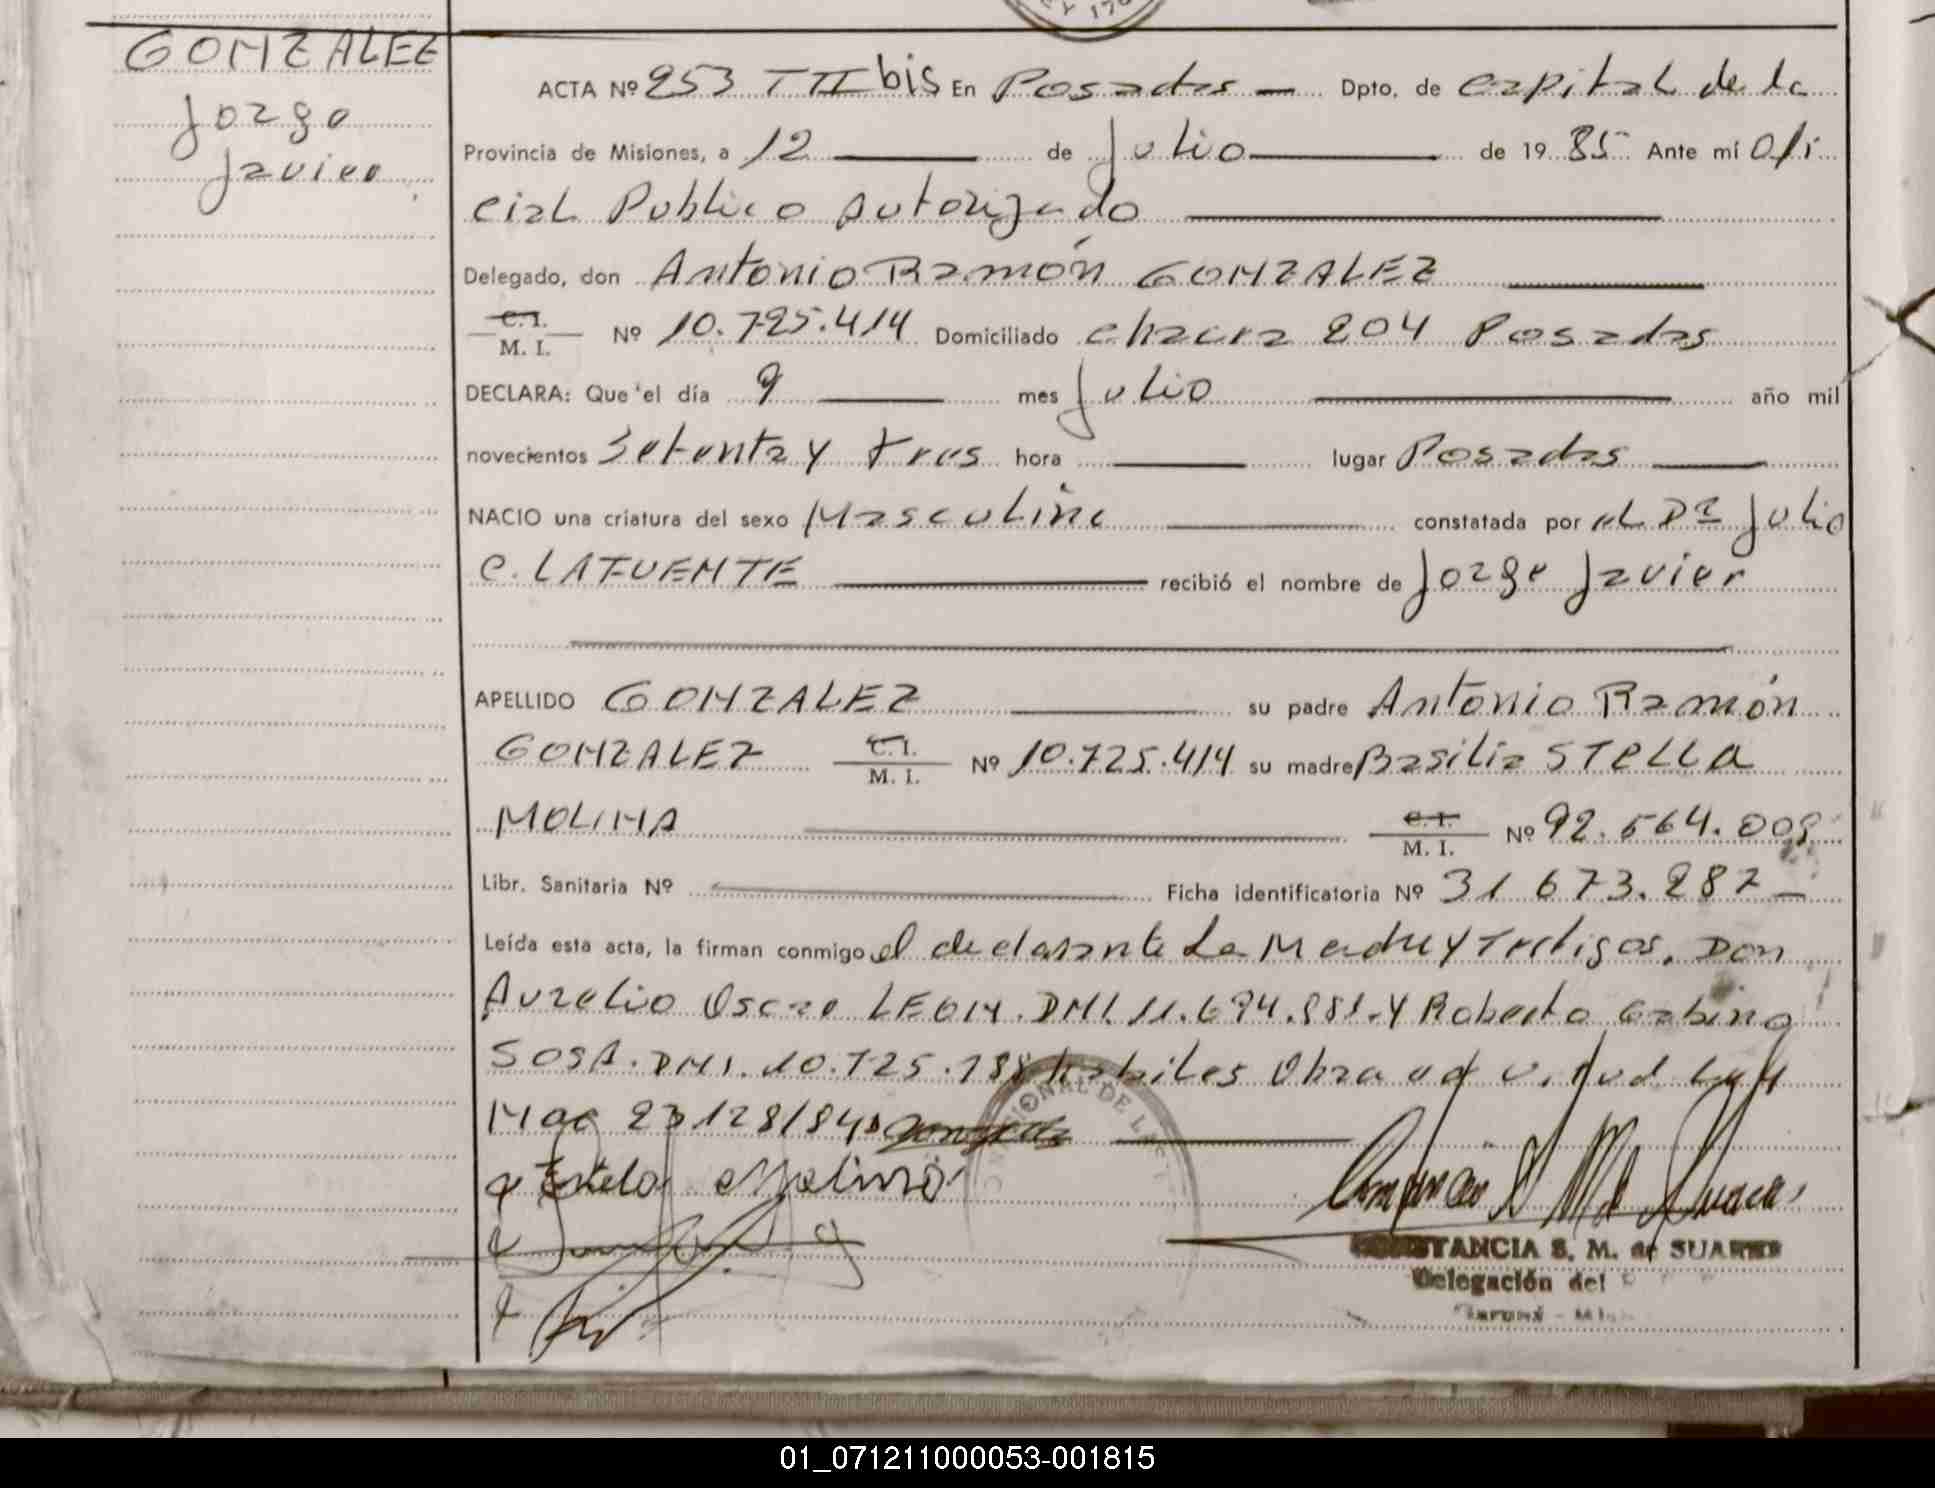 GONZALEZ
Jorge
Javier
ACTA Nº 253 TII bis En Posadas — Dpto, de Capital de la
Provincia de Misiones, a 12 de Julio de 19 85 Ante mí Ofi
cial Publico Autorizado
Delegado, don Antonio Ramón GONZALEZ
C.I.
M. I. Nº 10.725.414 Domiciliado Chacra 204 Posadas
DECLARA: Que el día 9 mes Julio año mil
novecientos Setenta y tres hora lugar Posadas
NACIO una criatura del sexo Masculino constatada por el Dr Julio
C. LAFUENTE recibió el nombre de Jorge Javier
APELLIDO GONZALEZ su padre Antonio Ramón
GONZALEZ C.I.
M. I. Nº 10.725.414 su madre Basilia STELLA
MOLINA C.I.
M. I. Nº 92.564.009
Libr. Sanitaria Nº Ficha identificatoria Nº 31 673.287 —
Leída esta acta, la firman conmigo el declarante La Madre y Testigos. Don
Aurelio Oscar LEON. DNI. 11.694.981. y Roberto Gabino
SOSA. DNI. 10.725.188 habiles Obra en virtud Ley
Nac 23128/84
Estela Molina
CONSTANCIA S. M. de SUAREZ
Delegación del
01_071211000053-001815